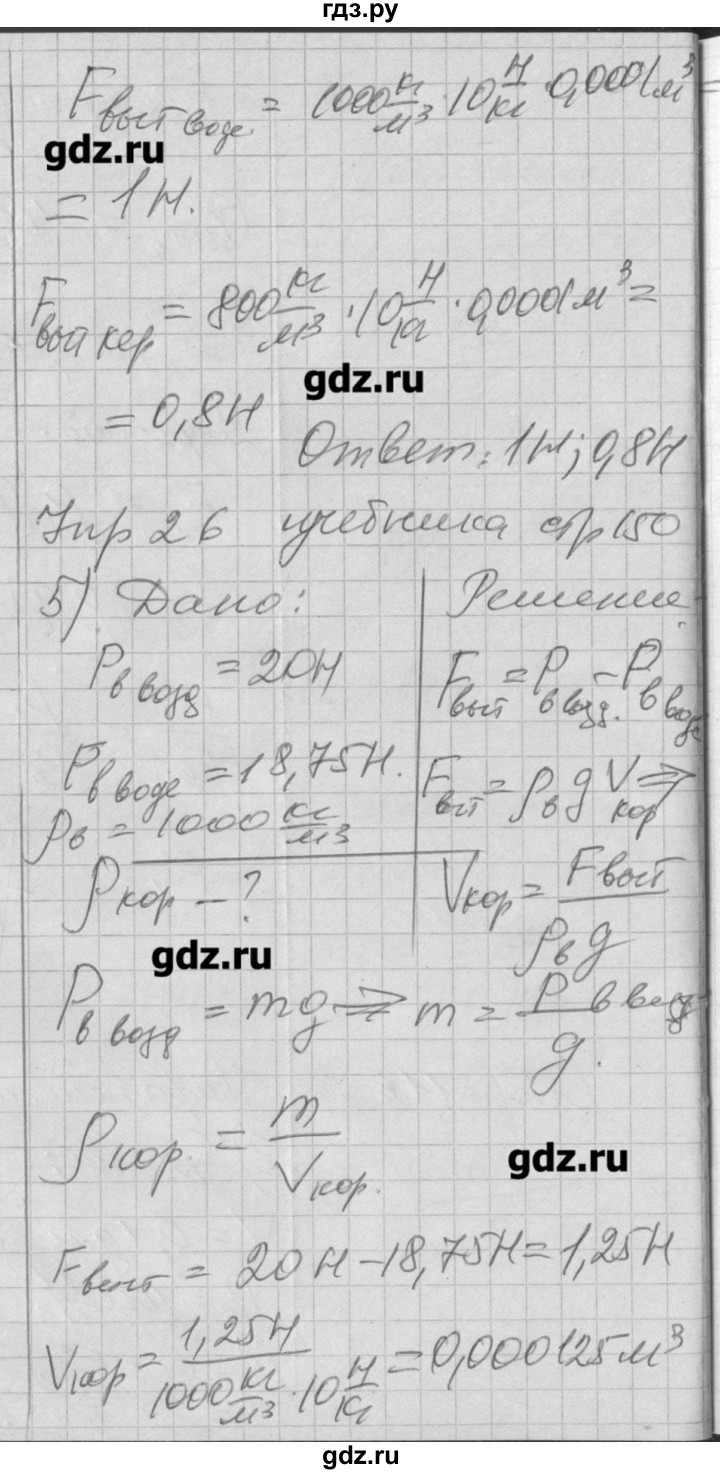 гдз.ру
F выт воде = 1000 кг/м³ · 10 Н/кг · 0,0001 м³ =
gdz.ru
= 1 Н.
F выт кер = 800 кг/м³ · 10 Н/кг · 0,0001 м³ =
gdz.ru
= 0,8 Н
Ответ: 1 Н; 0,8 Н
Упр 26 учебника стр 150
5) Дано:
P в возд = 20 Н
P в воде = 18,75 Н.
ρв = 1000 кг/м³
ρкор – ?
Решение:
F выт = P в возд. – P в воде
F выт = ρв g V кор ⇒
V кор = F выт / ρв g
gdz.ru
P в возд = mg ⇒ m = P в возд / g.
ρ кор. = m / V кор.
gdz.ru
F выт = 20 Н – 18,75 Н = 1,25 Н
V кор = 1,25 Н / 1000 кг/м³ · 10 Н/кг = 0,000125 м³
gdz.ru